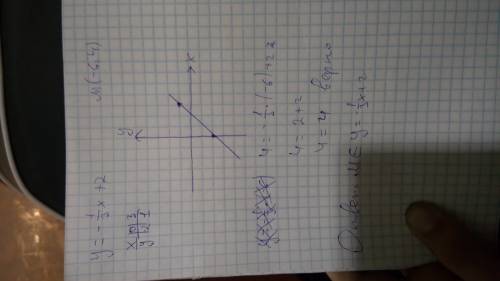 y = -1/3 x + 2   M(-6;4)
x | 0 | 3
y | 2 | 1
y
x
4 = -1/3 · (-6) + 2
4 = 2 + 2
4 = 4 верно
Ответ: M ∈ y = -1/3 x + 2